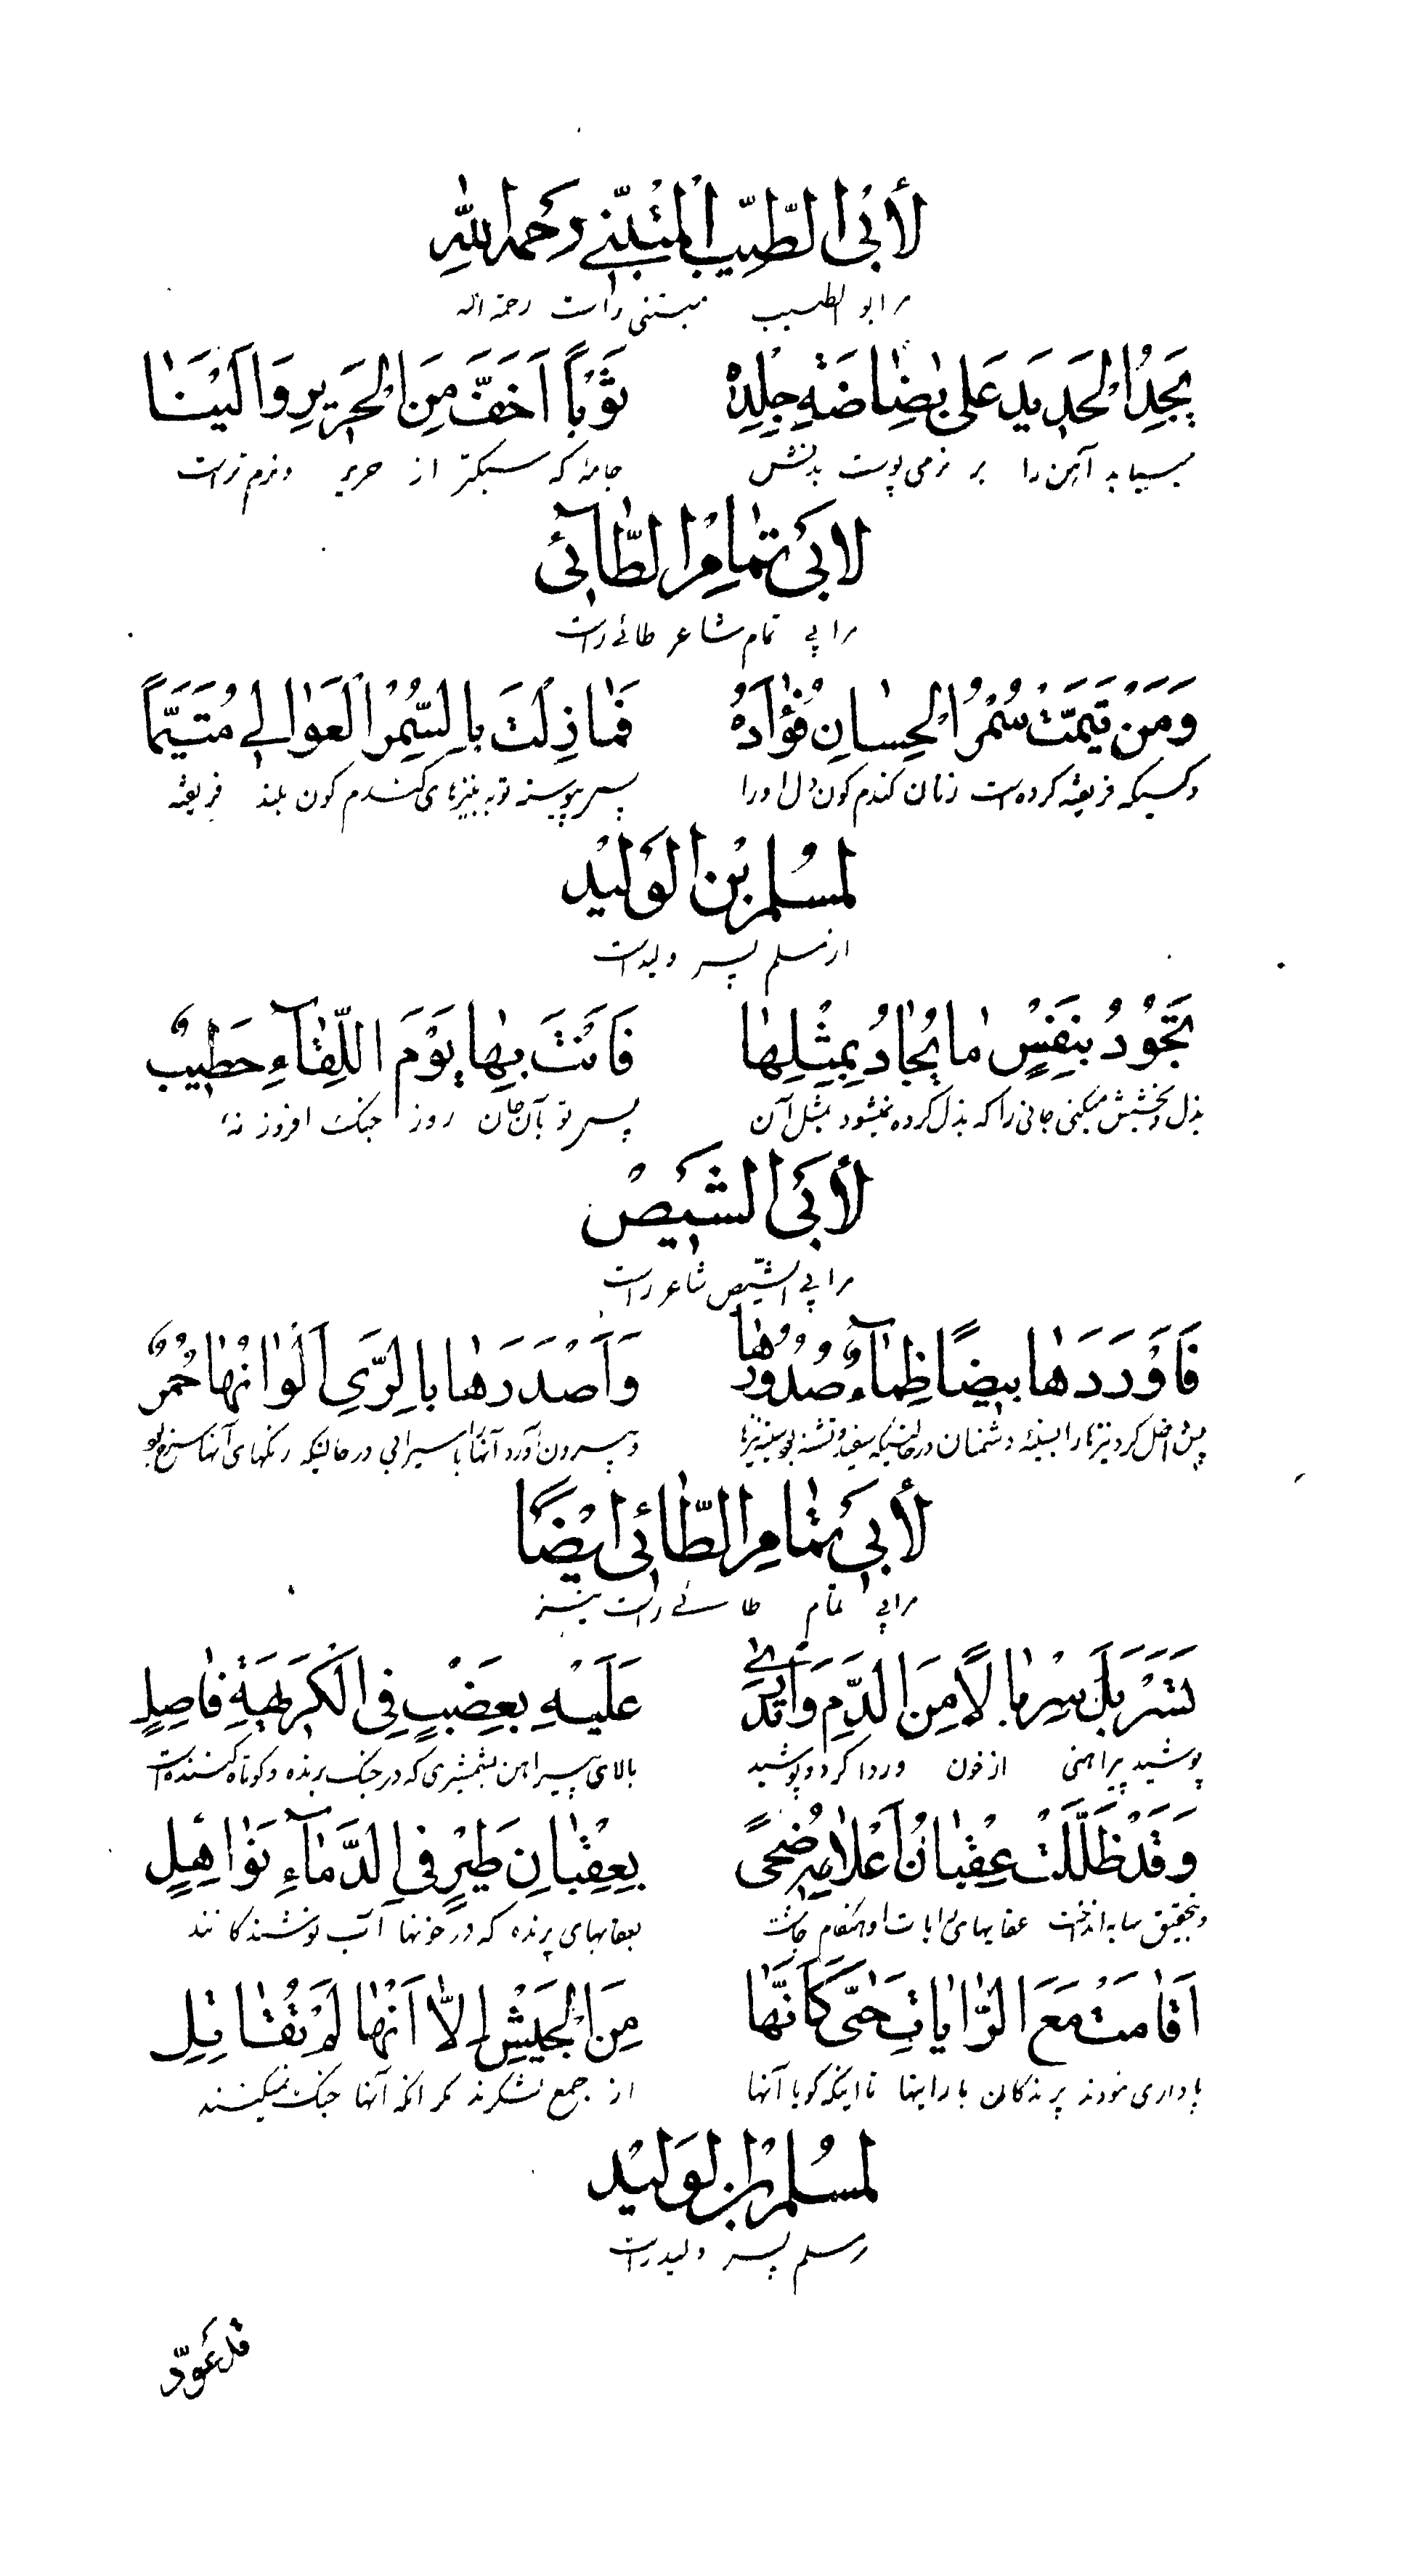 لأَبْي الطَّيِّب المْتَبَنّي رَحمَه اللهِ
مر ابو الطیب متنبی راست رحمة الله
يَجِدُ الْحَديَد عَلى بَضاضَةِ جِلْدِهْ ثَوْباً اَخَفَّ مِنَ الْحَرَيرِ وَاَلْيَنا
میبیابد آهن را بر نرمی پوست بدنش جامهٔ که سبکتر از حریر و نرم تر است
لابَی تمَامِ الطّآئیْ
مر ابی تمام شاعر طائے راست
وَمَنْ تَيمَّتْ سُمْرُ الْحِسانِ فُؤادَهُ فَما زِلْتَ بالِسُّمْرِ الْعَوالي مُتَيَّماً
و کسیکه فریفته کرده است زنان کندم کون دل او را پس پیوسته تو به نیزهای کندم کون بلند فریفته
لمُسْلم بْن الوَليْد
از مسلم پسر ولید است
تَجُوْدُ بِنَفْسٍ ما يُجادُ بِمِثْلِها فَاَنْتَ بِها يَوْمَ اللِّقآءِ خَطيبٌ
بذل و بخشش میکنی جانی را که بذل کرده نمیشود بمثل آن پس تو بآن جان روز جنک افروز نهٔ
لأبَی الشَيْص
مر ابی الشیص شاعر راست
فَاَوْرَدَها بيضًا ظِمآءً صُدُورُها وَاَصْدَرَها بالِرَّيِ اَلْوانُها حُمْرٌ
پس داخل کرد نیزها را بسینهٔ دشمنان در حالیکه سفید و تشنه بود سینه نیزها و بیرون آورد آنها را با سیرابی در حالیکه رنکهای آنها سرخ بود
لأبَي تمَّامِ الطّائي ايضًا
مر ابی تمام طائے راست نیز
تَسَرْبَلَ سِرْبالًا مِنَ الدَّمِ وَارْتَدى عَلَيْهِ بِعَضْبٍ فِي الْكَرَيهَةِ فاصِلٍ
پوشید پیراهنی از خون و ردا کرد و پوشید بالای پیراهن بشمشیری که در جنک برنده و کوتاه کننده است
وَقَدْ ظَلَّلَتْ عِقْبانُ اَعْلامِهِ ضُحىً بِعِقْبانِ طَيْرٍ فِي الدَّمآءِ نَواهِلٍ
و بتحقیق سایه انداخت عقابهای رایات او هنکام چاشت بعقابهای پرنده که در خونها آب نوشندکانند
اَقامَتْ مَعَ الرّاياتِ حَتّى كَاَنَّها مِنَ الْجَيْشِ اِلاّ اَنَّها لَمْ تُقاتِلِ
پاداری نمودند پرندکان با رایتها تا اینکه کویا آنها از جمع لشکرند مکر انکه آنها جنک نمیکنند
لمُسْلم بْن الوَليْد
مر مسلم پسر ولید راست
قد عَوّد